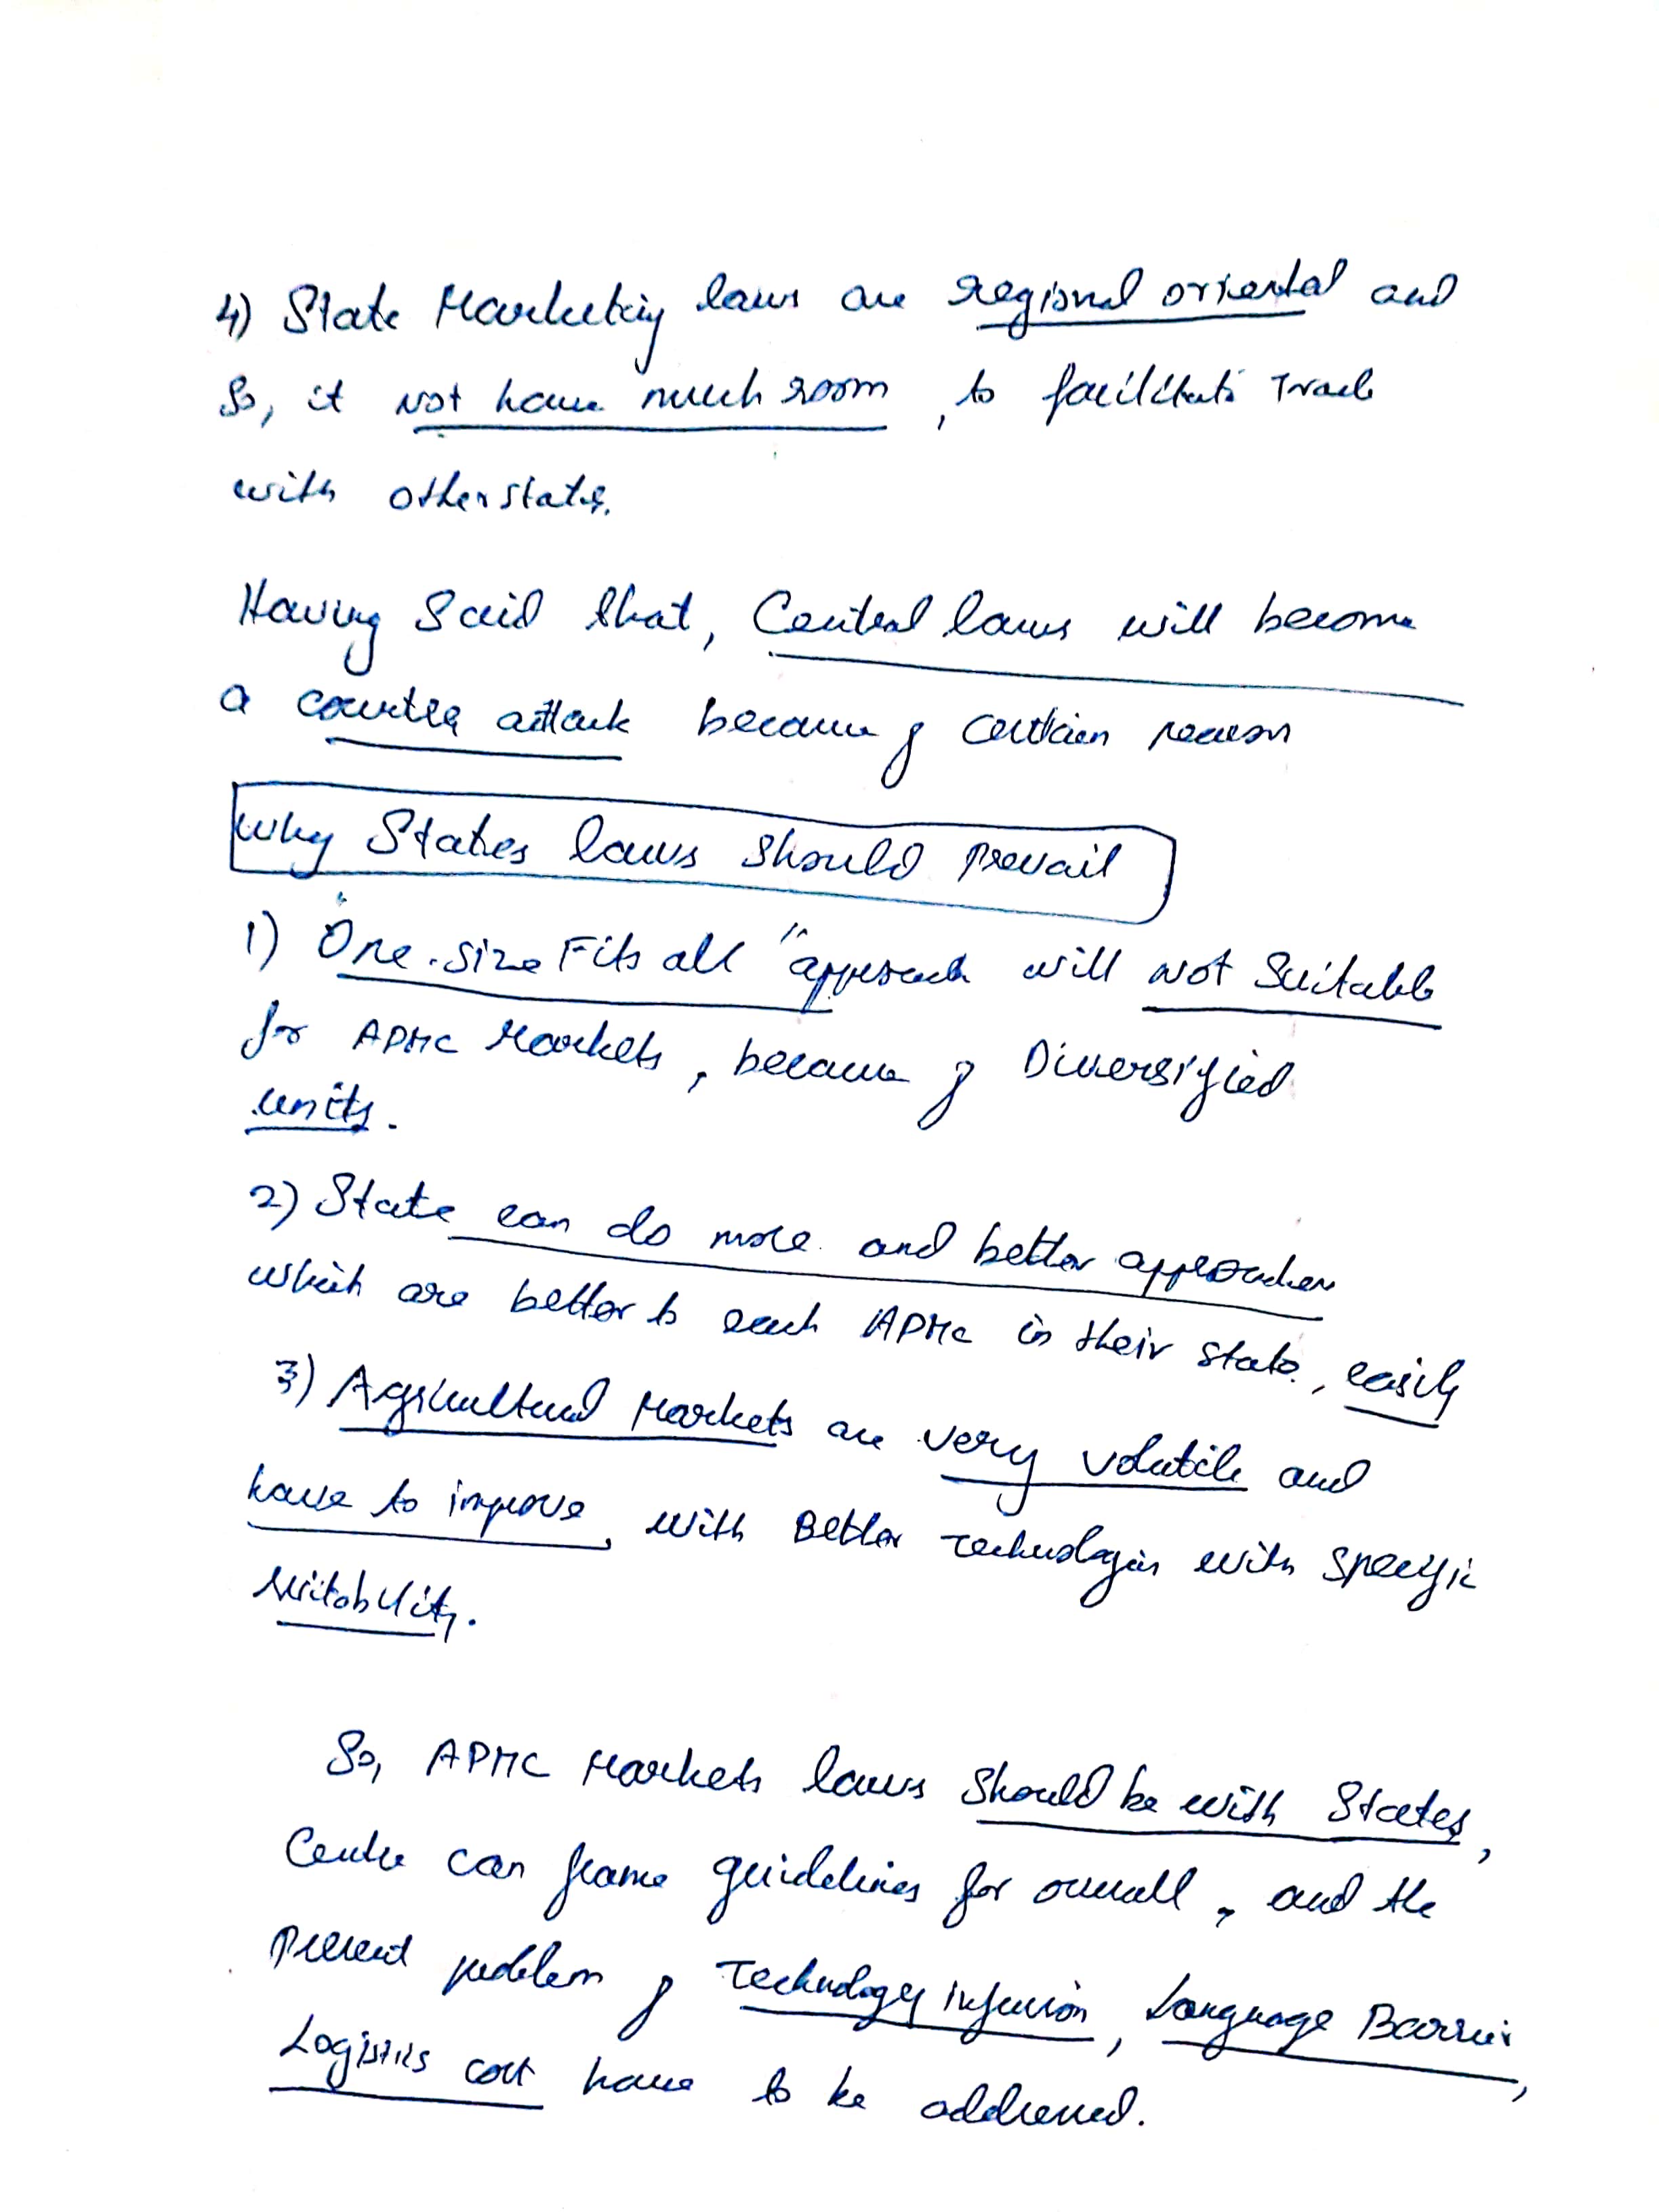 4) State Marketing laws are regional oriental and
So, it not have much room, to facilitate Trade
with other state.
Having Said that, Central laws will become
a counter attack because of certain reason
Why States laws should prevail
1) One-size Fits all" approach will not Suitable
for APMC Markets, because of Diversified
units.
2) State can do more and better approaches
which are better to each APMC in their state, easily
3) Agricultural Markets are very volatile and
have to improve, with Better Technologies with specific
suitability.
So, APMC Markets laws should be with States,
Centre can frame guidelines for overall, and the
present problem of Technology infusion, Language Barrier,
Logistics cost have to be addressed.